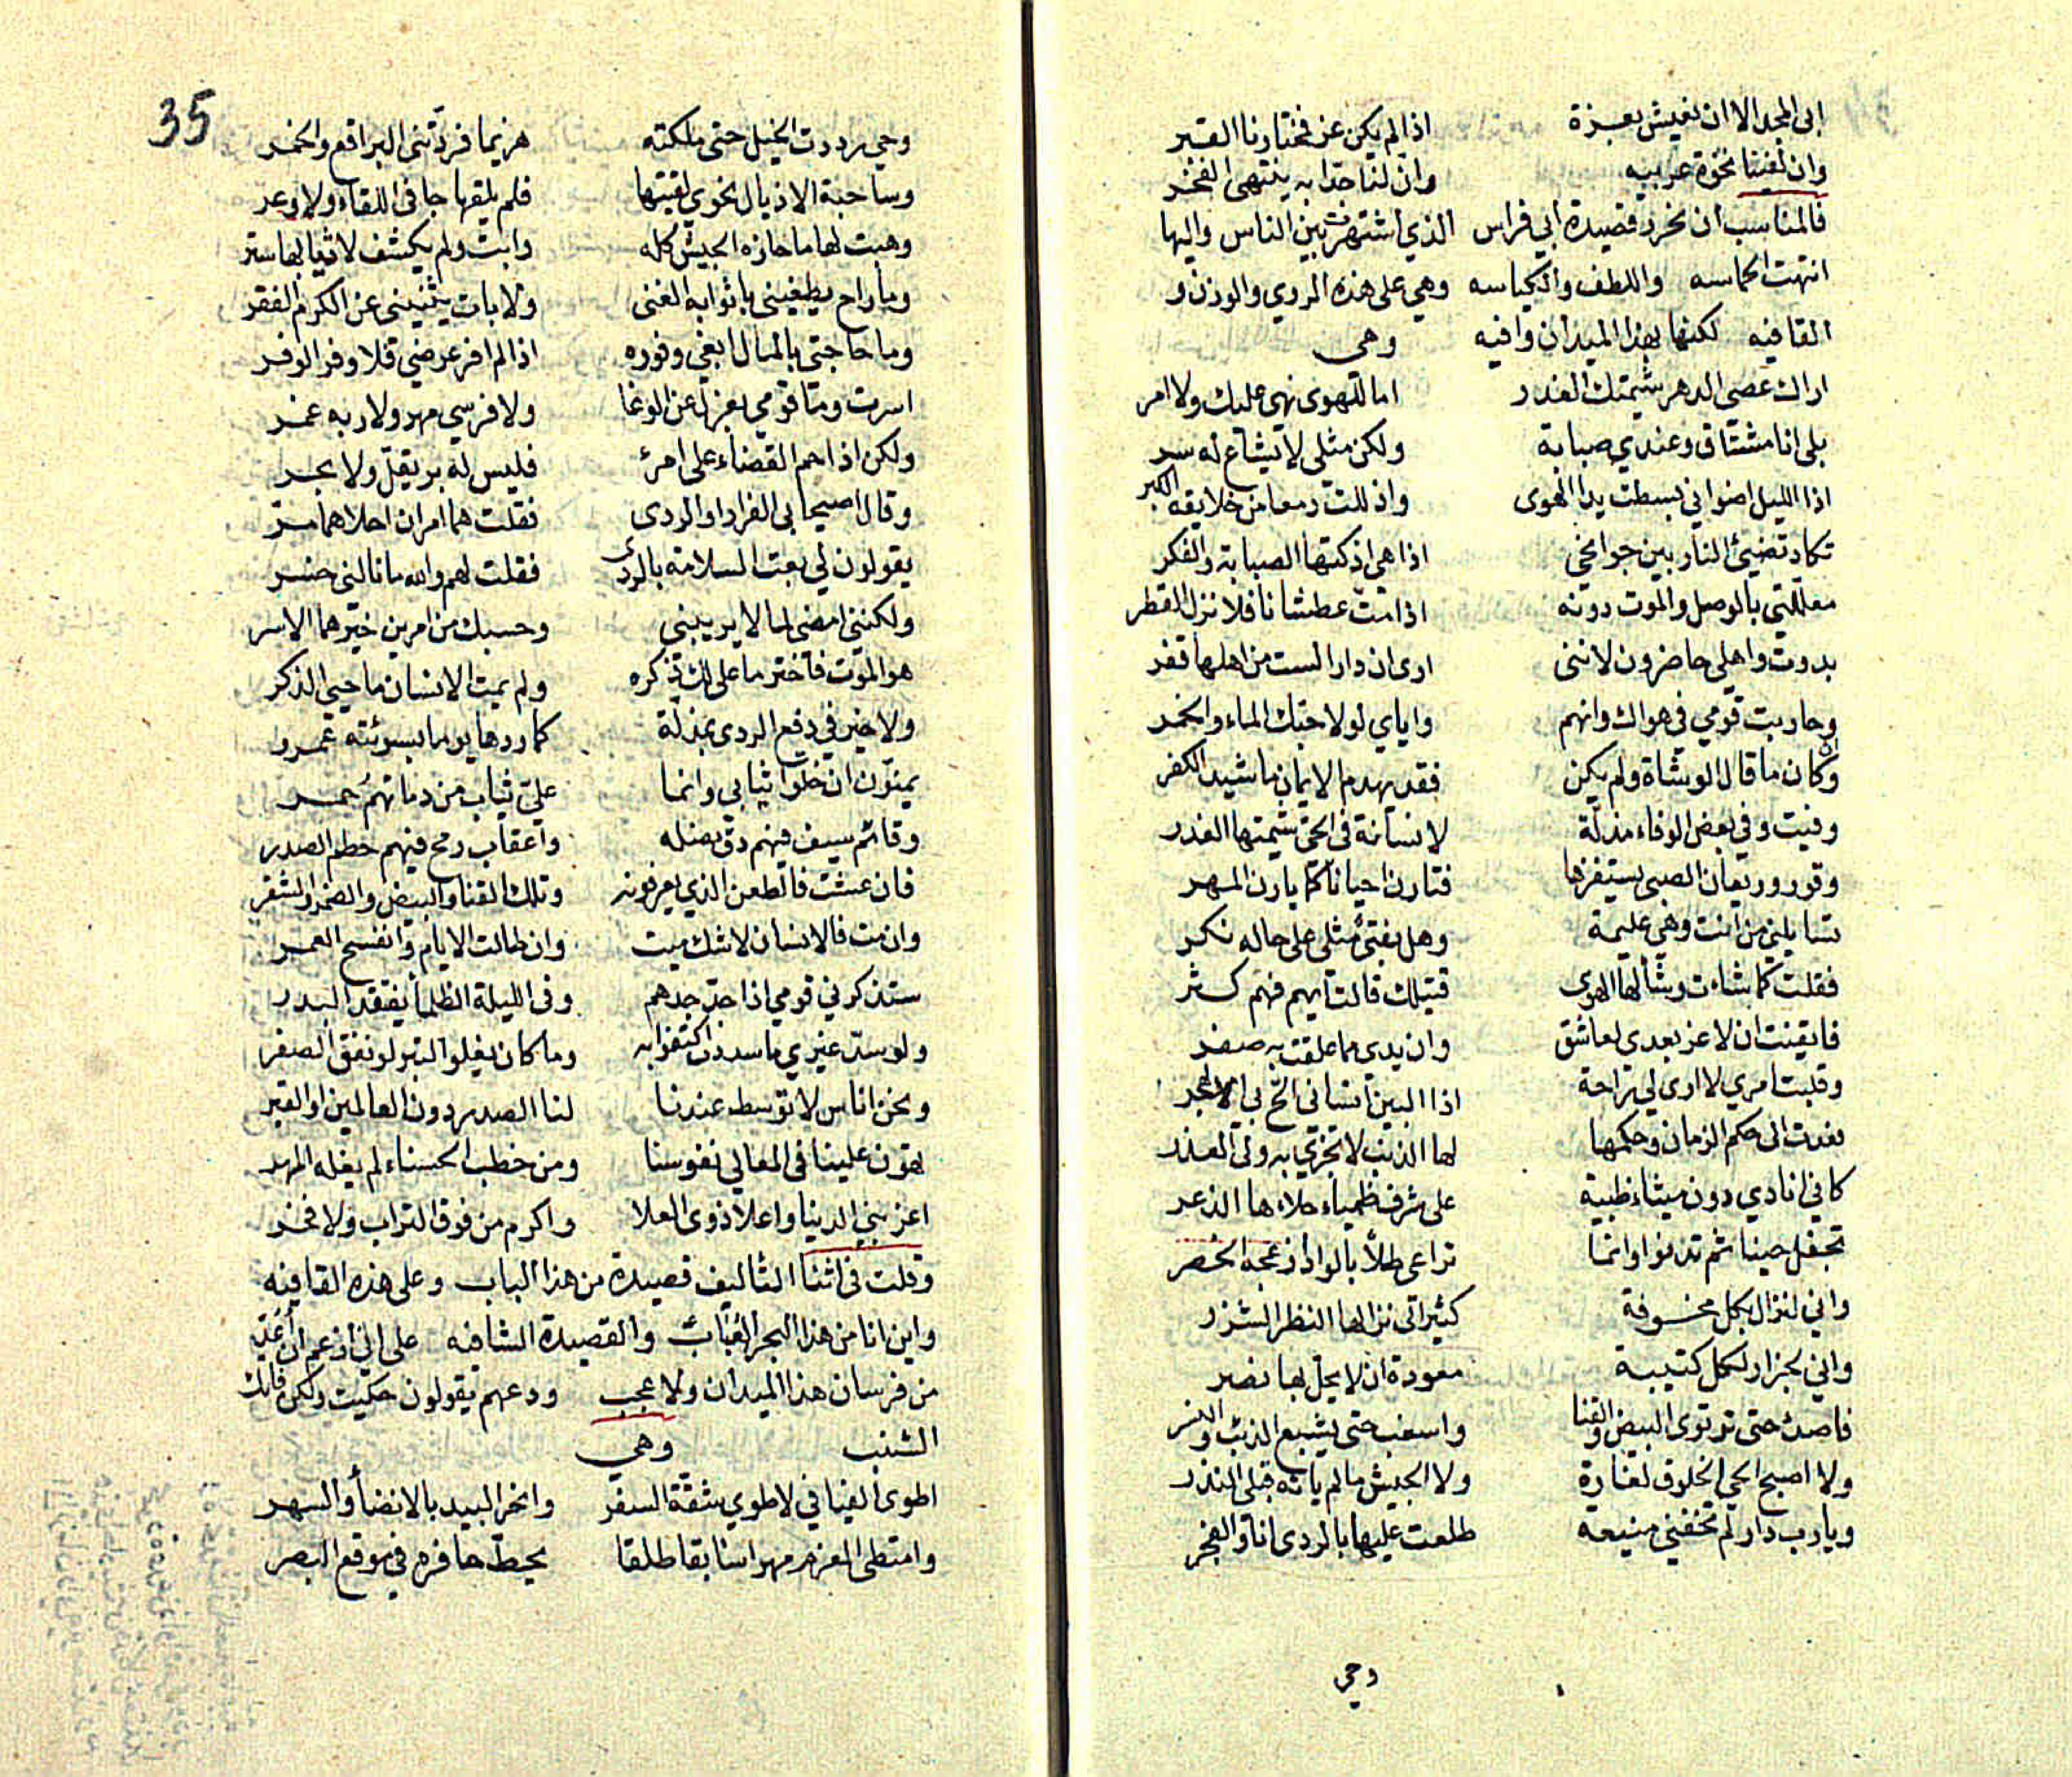 ابى المجد الا ان نعيش بعزة اذا لم يكن عز فمختارنا القبر
وان لفينا نخوة عربيه وان لنا حدا به ينتهى الفخر
فالمناسب ان نحرر قصيدة ابي فراس الذي اشتهرت بين الناس واليها
انتهت الحماسه واللطف والكياسه وهي على هذه الروي والوزن و
القافيه لكنها بهذا الميدان وافيه وهى
اراك عصى الدهر شيمتك الغدر اما للهوى نهي عليك ولا امر
بلى انا مشتاق وعندي صبابة ولكن مثلى لا يشاع له سر
اذا الليل اضوانى بسطت يدا الهوى واذللت دمعا من خلايقه الكبر
تكاد تضيئ النار بين جوانحي اذا هي اذكتها الصبابة والفكر
معللتي بالوصل والموت دونه اذا مت عطشانا فلا نزل القطر
بدوت واهلي حاضرون لاننى ارى ان دارا لست من اهلها قفر
وحاربت قومي في هواك وانهم واياي لولا حبك الماء والخمر
وان كان ما قال الوشاة ولم يكن فقد يهدم الايمان ما شيد الكفر
وفيت وفي بعض الوفاء مذلة لانسانة في الحي شيمتها الغدر
وقور وريعان الصبى يستفزها فتارن احيانا كما يارن المهر
تسايلني من انت وهي عليمة وهل بفتى مثلي على حاله نكر
فقلت كما شاءت وشا لها الهوى قتيلك قالت ايهم فهم كثر
فايقنت ان لا عز بعدى لعاشق وان يدي مما علقت به صفر
وقلبت امري لا ارى لي راحة اذا البين انساني الح بي الهجر
فعدت الى حكم الزمان وحكمها لها الذنب لا تجزي به ولي العذر
كاني انادي دون ميثاء ظبية على شرف ظمياء جلاءها الذعر
تجفل حينا ثم تدنوا وانما تراعى طلا بالواد اعجه الحضر
واني لنزال بكل مخوفة كثير الى نزالها النظر الشزر
واني لجزار لكل كتيبة معودة ان لا يخل بها نصر
فاصدئ حتى ترتوى البيض والقنا واسغب حتى يشبع الذئب والنسر
ولا اصبح الحي الخلوف لغارة ولا الجيش ما لم ياته قبلي النذر
ويا رب دار لم تخفني منيعة طلعت عليها بالردى انا والفجر
وحي
35
وحي رددت الخيل حتى ملكته هزيما فردتنى البراقع والخمر
وساحبة الاذيال نحوي لقيتها فلم يلقها جافى اللقاء ولا وعر
وهبت لها ما حازه الجيش كله وابت ولم يكشف لاثيابها ستر
وما راح يطغيني باثوابه الغنى ولا بات يثنيني عن الكرم الفقر
وما حاجتي بالمال ابغي وفوره اذا لم افر عرضي فلا وفر الوفر
اسرت وما قومي بعزل عن الوغا ولا فرسي مهر ولا ربه عمر
ولكن اذا حم القضاء على امرئ فليس له بر يقل ولا بحر
وقال اصيحابى الفرار او الردى فقلت هما امران احلاهما مر
يقولون لي بعت السلامة بالردى فقلت لهم والله ما نالنى خسر
ولكننى امضي لما لا يريبني وحسبك من امرين خيرهما الاسر
هو الموت فاختر ما علا لك ذكره ولم يمت الانسان ما حيي الذكر
ولا خير في دفع الردى بمذلة كما ردها يوما بسوئته عمرو
يمنون ان خلوا ثيابى وانما علي ثياب من دمائهم حمر
وقائم سيف فيهم دق نصله واعقاب رمح فيهم حطم الصدر
فان عشت فالطعن الذي يعرفونه وتلك القنا والبيض والضمر الشقر
وان مت فالانسان لا شك ميت وان طالت الايام وانفسح العمر
ستذكرني قومي اذا جد جدهم وفى الليلة الظلما يفتقد البدر
ولو سد غيري ما سددت اكتفوا به وما كان يغلوا التبر لو نفق الصفر
ونحن اناس لا توسط عندنا لنا الصدر دون العالمين او القبر
تهون علينا في المعالي نفوسنا ومن خطب الحسناء لم يغله المهر
اعز بني الدنيا واعلا ذوى العلا واكرم من فوق التراب ولا فخر
وقلت في اثنا التاليف قصيدة من هذا الباب وعلى هذه القافيه
واين انا من هذا البحر العباب والقصيدة الشافيه على اني ازعم ان اعد
من فرسان هذا الميدان ولا عجب ودعهم يقولون حكيت ولكن فاتك
الشنب وهي
اطوى الفيافي لاطوي شقة السفر وانحر البيد بالانضأ والسهر
وامتطى العزم مهرا سابقا طلقا يحط حافره في موقع البصر